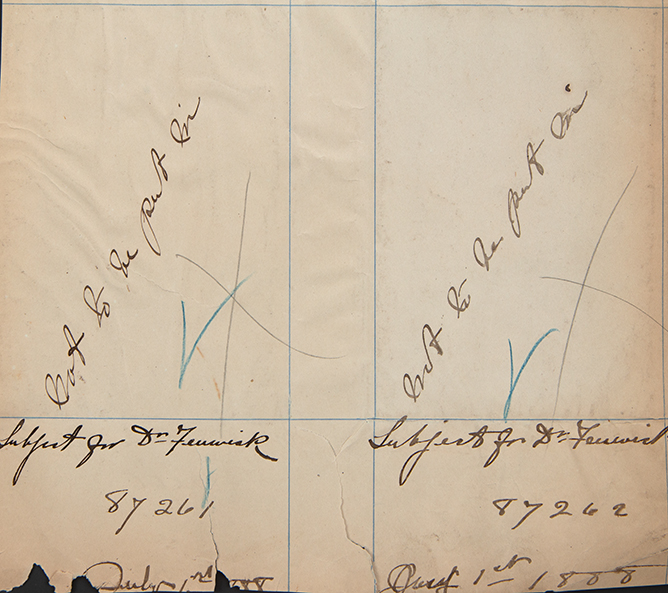 Not to be put in
Not to be put in
Subject for Dr Fenwick
Subject for Dr Fenwick
87261
87262
July 1st 188
1st 1888